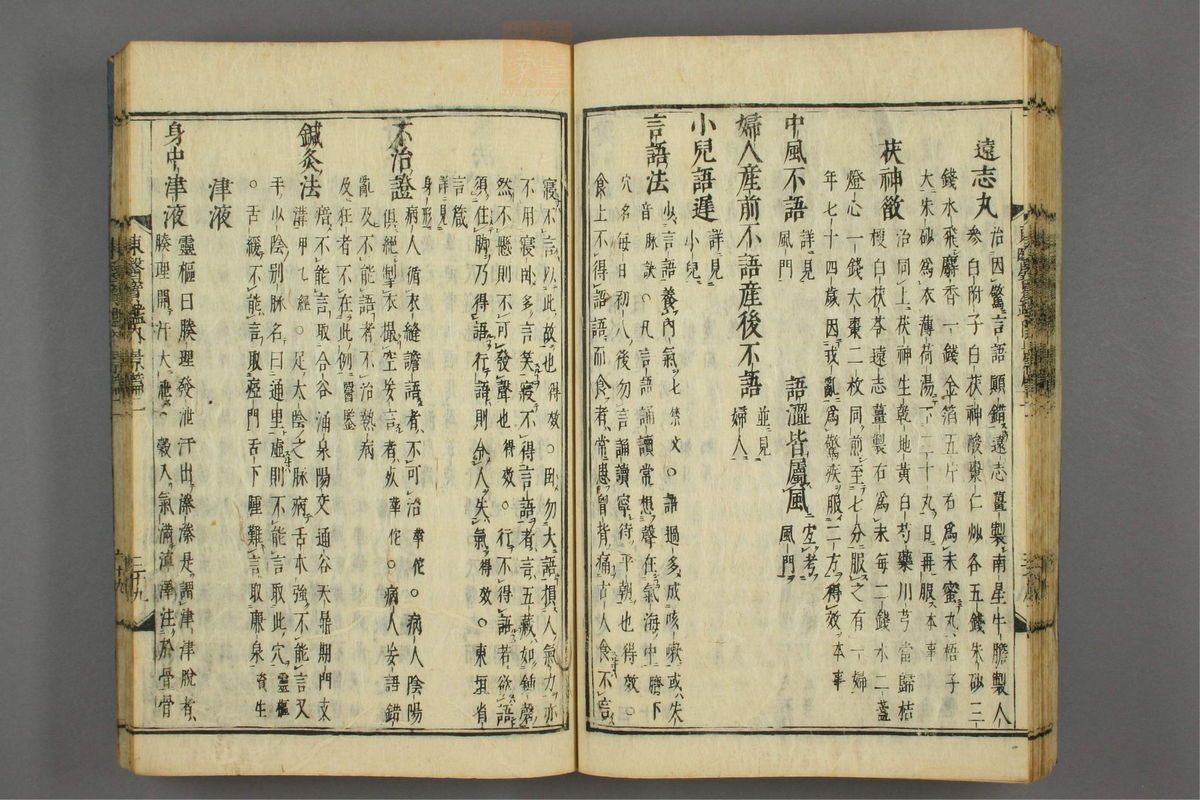 遠志丸 治因驚言語顛錯遠志薑製南星牛膽製人
參白附子白茯神酸棗仁炒各五錢朱砂三
錢水飛麝香一錢金箔五片右爲末蜜丸梧子
大朱砂爲衣薄荷湯下三十丸日再服本事
茯神散 治同上茯神生乾地黃白芍藥川芎當歸桔
梗白茯苓遠志薑製右爲末每二錢水二盞
燈心一錢大棗二枚同煎至七分服之有一婦
年七十四歲因我亂爲驚疾服二方得效本事
中風不語 詳見風門 語澀皆屬風 宜考風門
婦人産前不語産後不語 並見婦人
小兒語遲 詳見小兒
言語法 少言語養內氣七禁文○語過多成咳嗽或失
音脉訣○凡言語誦讀常想聲在氣海中臍下
穴名每日初入後勿言誦讀寧待平朝也得效○
食上不得語語而食者常患胷背痛古人食不言
寢不言以此故也得效○臥勿大語損人氣力亦
不用寢臥多言笑寢不得言語者言五藏如鍾磬
然不懸則不可發聲也得效○行不得語若欲語
須住脚乃得語行語則令人失氣得效○東垣省
言箴詳見身形
不治證 病人循衣縫譫語者不可治華佗○病人陰陽
俱絕掣衣撮空妄言者死華佗○病人妄語錯
亂及不能語者不治熱病
及狂者不在此例醫鑑
鍼灸法 瘖不能言取合谷涌泉陽交通谷天鼎期門支
溝甲乙經○足太陰之脉病舌本強不能言又
手少陰別脉名曰通里虛則不能言取此穴靈樞
○舌緩不能言取瘂門舌下腫難言取廉泉資生
津液
身中津液 靈樞曰腠理發泄汗出溱溱是謂津津脫者
腠理開汗大泄○穀入氣滿淖澤注於骨骨